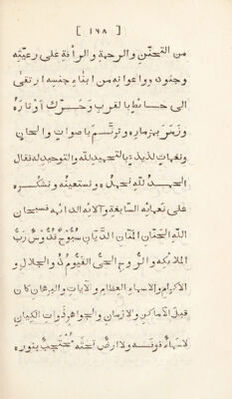 [ ١٩٨ ]
من التحنّن والرحمة والرأفة على رعيّته
وجنوده واعوانه من ابناء جنسه ارتقى
الى حائط بالقرب وحرّك اوتاره
وزمّر بمزماره وترنّم باصوات والحان
ونغمات لذيذة بالتحميد لله والتوحيد له فقال
الحمد لله نحمده ونستعينه ونشكره
على نعمائه السابغة وآلائه الدائمة فسبحان
الله الحنّان المنّان الديّان سبّوح قدّوس ربّ
الملائكة والروح الحيّ القيّوم ذو الجلال و
الاكرام والاسماء العظام والآيات والبرهان كان
قبل الاماكن والازمان والجواهر ذوات الكيان
لا سماء فوقه ولا ارض تحته محتجب بنوره